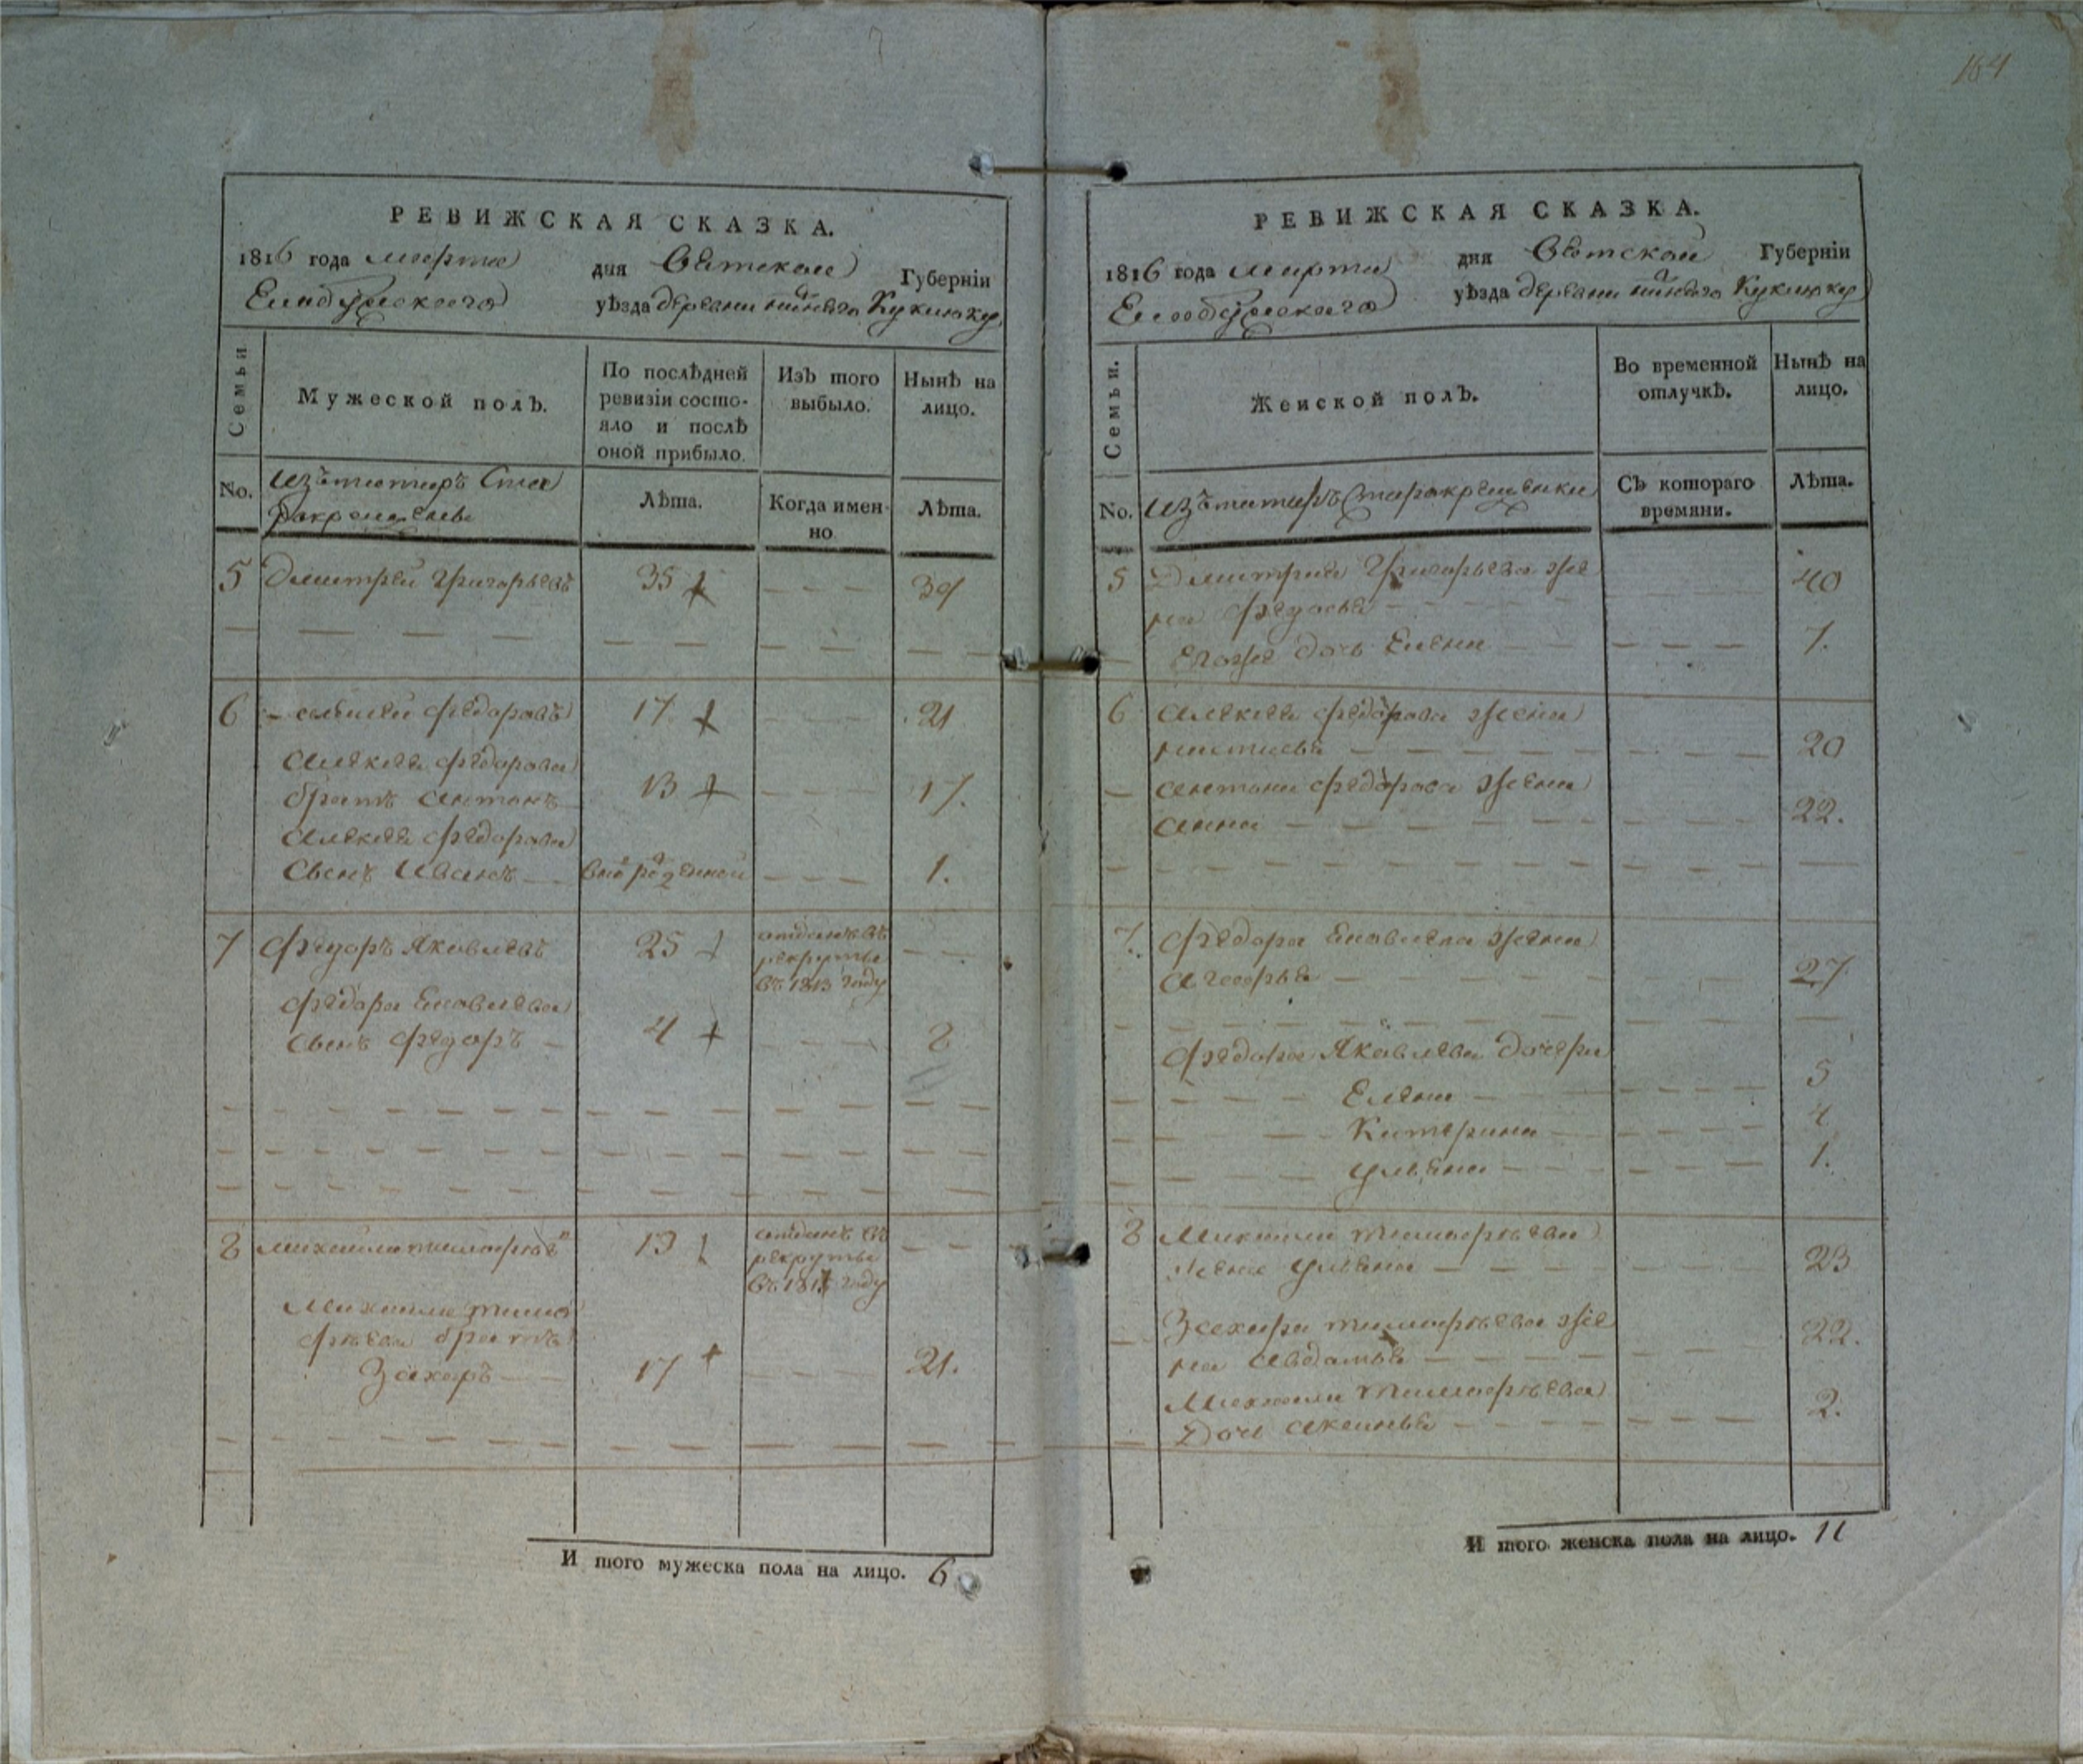 164
РЕВИЖСКАЯ СКАЗКА.
1816 года марта дня Вятской Губерніи
Елабужскаго уѣзда деревни Куклюку
Семьи
Мужеской полъ.
По послѣдней ревизіи состо-
яло и послѣ
оной прибыло.
Изъ того
выбыло.
Нынѣ на
лицо.
No.
изъ татаръ Ста
рокрещеныхъ
Лѣта.
Когда имен-
но
Лѣта.
5 Дмитрей Григорьевъ 35 39
6 Федоровъ 17 21
Алексея Федорова
братъ Антонъ 13 17.
Алексея Федорова
Сынъ Иванъ 1.
7 Федоръ Яковлевъ 25 отданъ въ
рекруты
въ 1813 году
Федора Яковлева
Сынъ Федоръ 4 8
8 Михайла Тимофеевъ 19 отданъ въ
рекруты
году
Михайла Тимо
феева братъ
Захаръ 17 21.
И того мужеска пола на лицо. 6
РЕВИЖСКАЯ СКАЗКА.
1816 года марта дня Вятской Губерніи
Елабужскаго уѣзда деревни Куклюку
Семьи.
Женской полъ.
Во временной
отлучкѣ.
Нынѣ на
лицо.
No. изъ татаръ Старокрещенки
Съ котораго
времяни.
Лѣта.
5 Дмитрия Григорьева же
на Федосья 40
Егоже дочь Елена 7.
6 Алексея Федорова жена
Настасья 20
Антона Федорова жена
Анна 22.
7. Федора Яковлева жена
27
Федора Яковлева дочери
Елена 5
Катерина 4
Ульяна 1.
8 Михаила Тимофеева
жена Ульяна 23
Захара Тимофеева же
на Авдотья 22.
Михаила Тимофеева
Дочь Акулина 2.
И того женска пола на лицо. 11